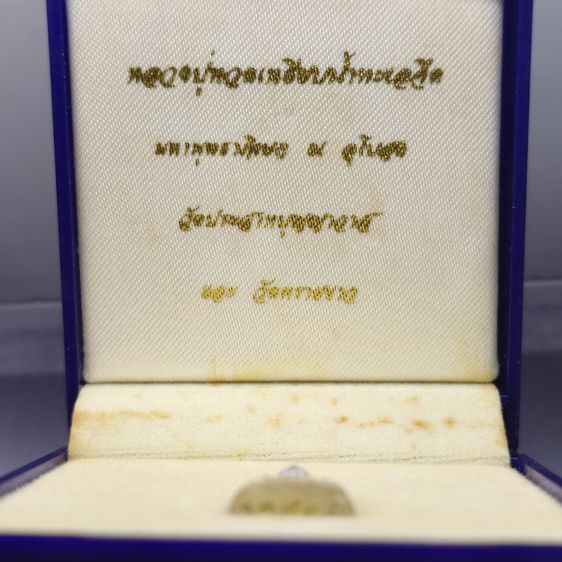 หลวงปู่ทวดเหยียบน้ำทะเลจืด
มหาพุทธาภิเษก ณ อุโบสถ
วัดประสาทบุญญาวาส
และ วัดทรายขาว